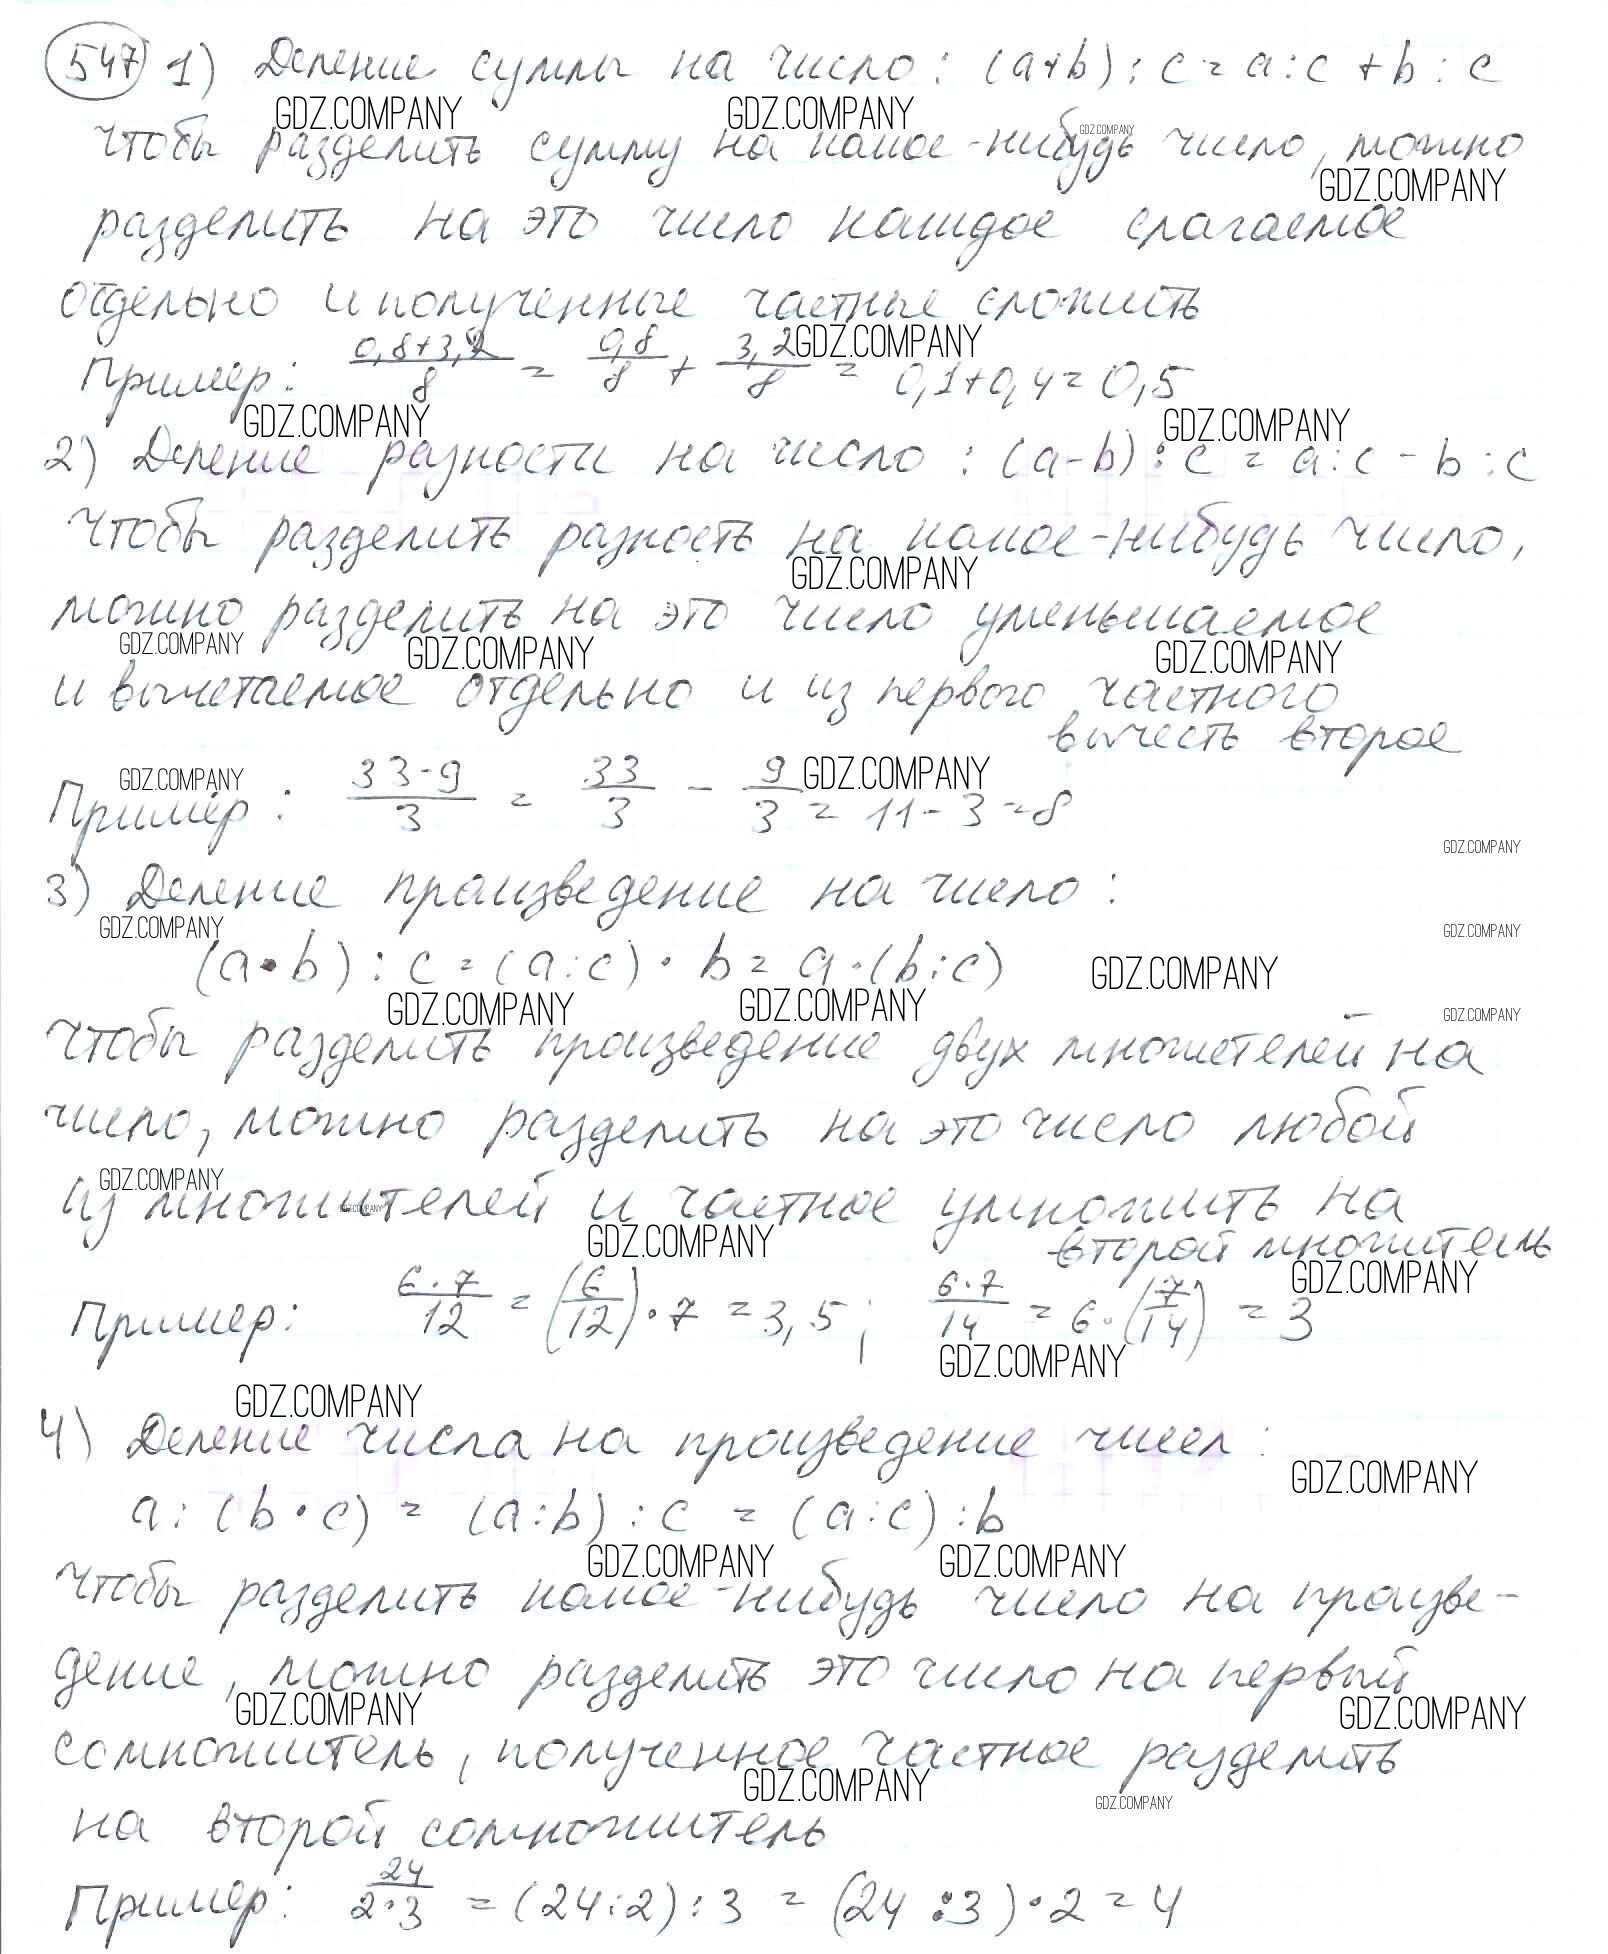 547 1) Деление суммы на число: (a+b):c=a:c+b:c
GDZ.COMPANY GDZ.COMPANY GDZ.COMPANY
Чтобы разделить сумму на какое-нибудь число, можно
GDZ.COMPANY
разделить на это число каждое слагаемое
отдельно и полученные частные сложить
Пример: (0,8+3,2)/8 = 0,8/8 + 3,2/8 = 0,1+0,4=0,5
GDZ.COMPANY
GDZ.COMPANY GDZ.COMPANY
2) Деление разности на число: (a-b):c=a:c-b:c
Чтобы разделить разность на какое-нибудь число,
GDZ.COMPANY
можно разделить на это число уменьшаемое
GDZ.COMPANY GDZ.COMPANY GDZ.COMPANY
и вычетаемое отдельно и из первого частного
вычесть второе
GDZ.COMPANY GDZ.COMPANY
Пример: (33-9)/3 = 33/3 - 9/3 = 11-3=8
GDZ.COMPANY
3) Деление произведение на число:
GDZ.COMPANY GDZ.COMPANY
(a·b):c=(a:c)·b=a·(b:c)
GDZ.COMPANY
GDZ.COMPANY GDZ.COMPANY GDZ.COMPANY
Чтобы разделить произведение двух множетелей на
число, можно разделить на это число любой
GDZ.COMPANY
из множителей и частное умножить на
GDZ.COMPANY
GDZ.COMPANY
второй множитель
GDZ.COMPANY
Пример: 6·7/12 = (6/12)·7 = 3,5; 6·7/14 = 6·(7/14) = 3
GDZ.COMPANY
GDZ.COMPANY
4) Деление числа на произведение чисел:
GDZ.COMPANY
a:(b·c) = (a:b):c = (a:c):b
GDZ.COMPANY GDZ.COMPANY
Чтобы разделить какое-нибудь число на произве-
дение, можно разделить это число на первый
GDZ.COMPANY GDZ.COMPANY
сомножитель, полученное частное разделить
GDZ.COMPANY GDZ.COMPANY
на второй сомножитель
Пример: 24/2·3 = (24:2):3 = (24:3)·2=4